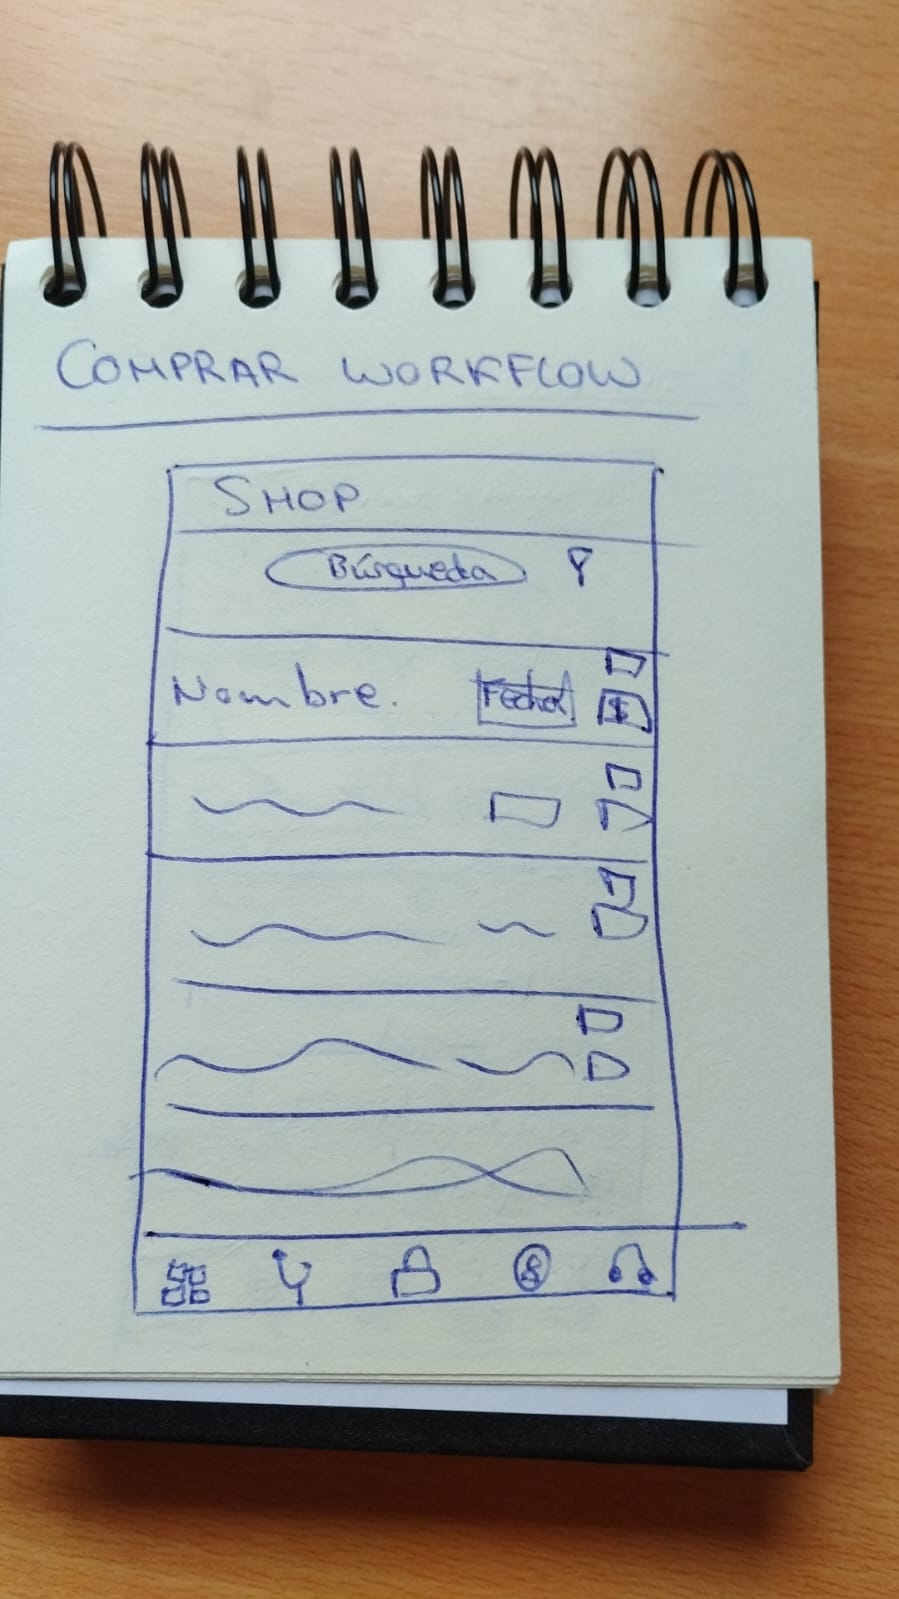 COMPRAR WORKFLOW
SHOP
Búsqueda
Nombre. Fecha $